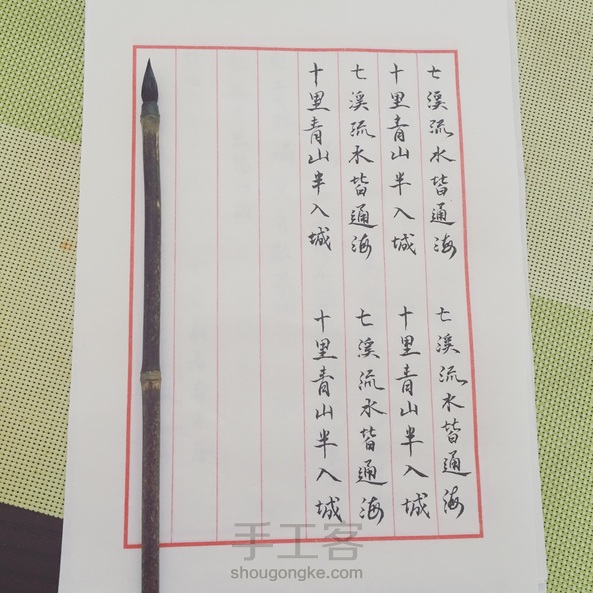 七溪流水皆通海
十里青山半入城
七溪流水皆通海
十里青山半入城
七溪流水皆通海
十里青山半入城
七溪流水皆通海
十里青山半入城
手工客
shougongke.com